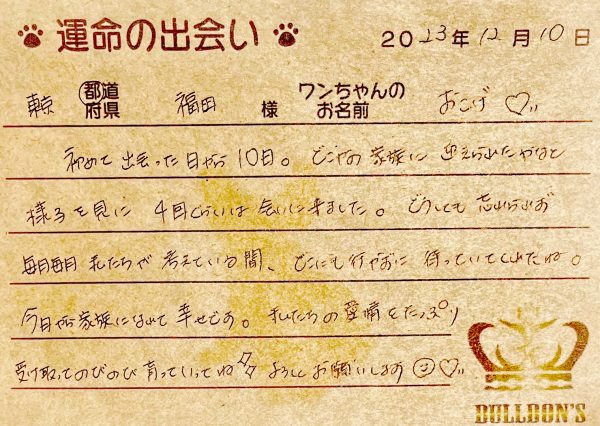 運命の出会い 2023年12月10日
東京 都道府県 福田 様 ワンちゃんのお名前 おこげ♡
初めて出会った日から10日。どこかの家族に迎えられたかなと
様子を見に 4回ぐらいは会いに来ました。どうしても忘れられず
毎日毎日 私たちが考えている間、どこにも行かずに待っていてくれたね。
今日から家族になれて幸せです。私たちの愛情をたっぷり
受け取ってのびのび育っていってね よろしくお願いします♡
BULLDON'S